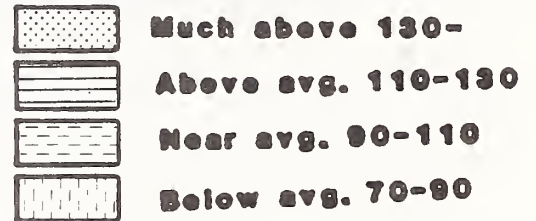 Much above 130-
Above avg. 110-130
Near avg. 90-110
Below avg. 70-90